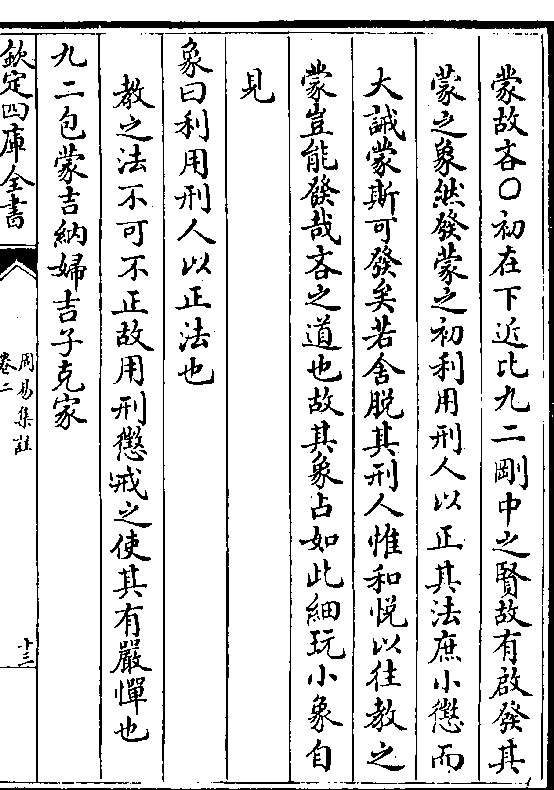 蒙故吝○初在下近比九二剛中之賢故有啟發其
蒙之象然發蒙之初利用刑人以正其法庶小懲而
大誡蒙斯可發矣若舍脱其刑人惟和悦以往教之
蒙豈能發哉吝之道也故其象占如此細玩小象自
見
象曰利用刑人以正法也
教之法不可不正故用刑懲戒之使其有嚴憚也
九二包蒙吉納婦吉子克家
欽定四庫全書
周易集註
卷二
十三